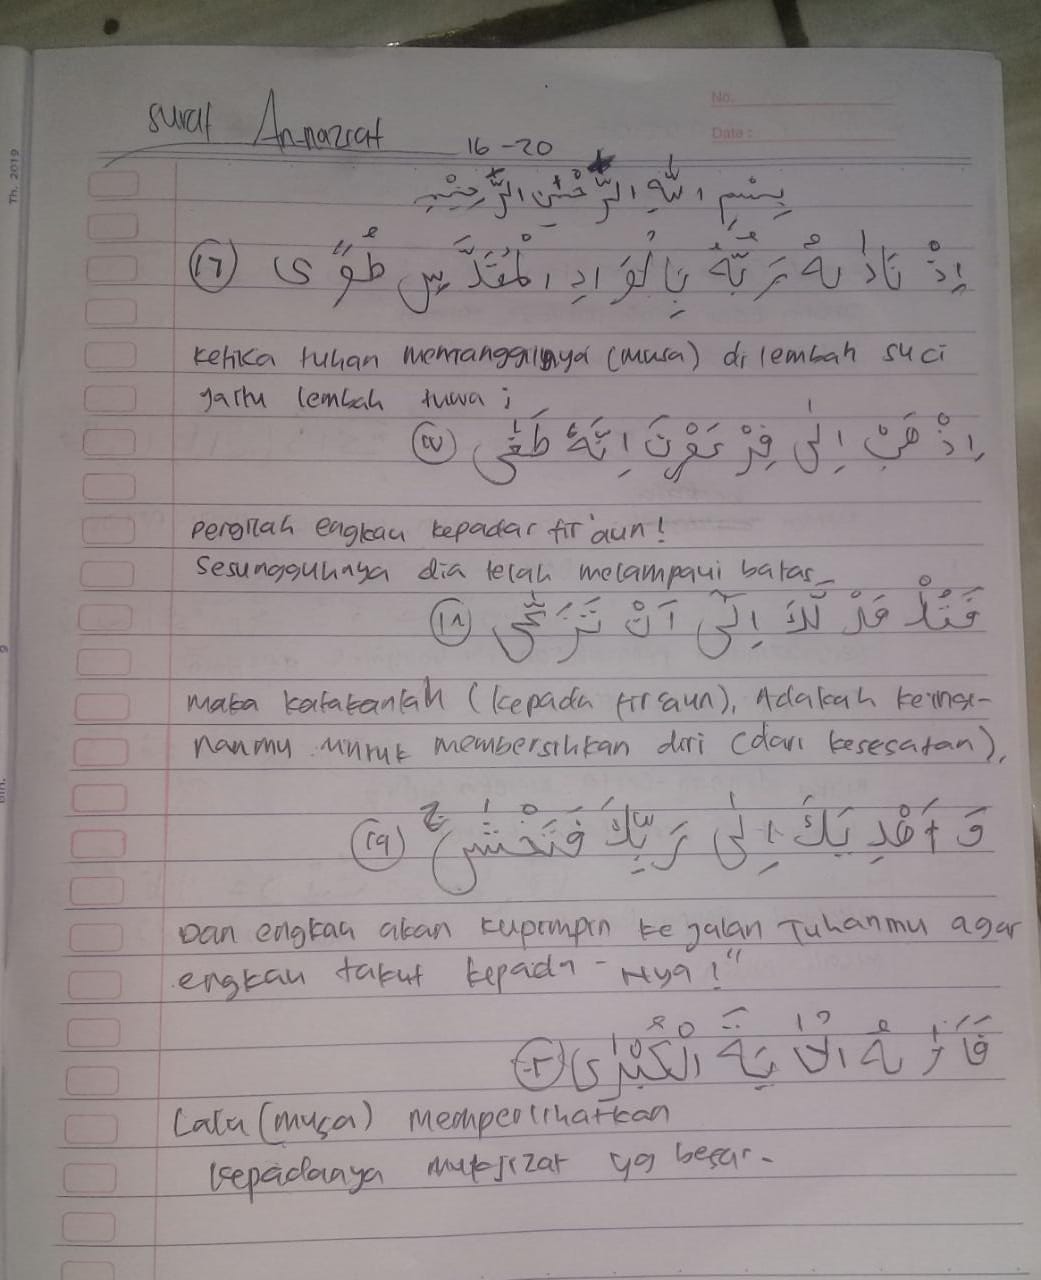 surat An-nazrat 16-20
No.
Date :
Th. 2019
بِسْمِ اللّٰهِ الرَّحْمٰنِ الرَّحِيْمِ
اِذْ نَادٰىهُ رَبُّهٗ بِالْوَادِ الْمُقَدَّسِ طُوًى (١٦)
ketika tuhan memanggilnya (musa) di lembah suci
yaitu lembah tuwa ;
اِذْهَبْ اِلٰى فِرْعَوْنَ اِنَّهٗ طَغٰى (١٧)
pergilah engkau kepadar fir'aun!
Sesungguhnya dia telah melampaui batas
فَقُلْ هَلْ لَّكَ اِلٰٓى اَنْ تَزَكّٰى (١٨)
maka katakanlah (kepada firaun), Adakah keingi-
nanmu untuk membersihkan diri (dari kesesatan),
وَ اَهْدِيَكَ اِلٰى رَبِّكَ فَتَخْشٰى ج (١٩)
Dan engkau akan kupimpin ke jalan Tuhanmu agar
engkau takut kepada - Nya!"
فَاَرٰىهُ الْاٰيَةَ الْكُبْرٰى (٢٠)
Lalu (musa) memperlihatkan
kepadanya mukjizat yg besar-